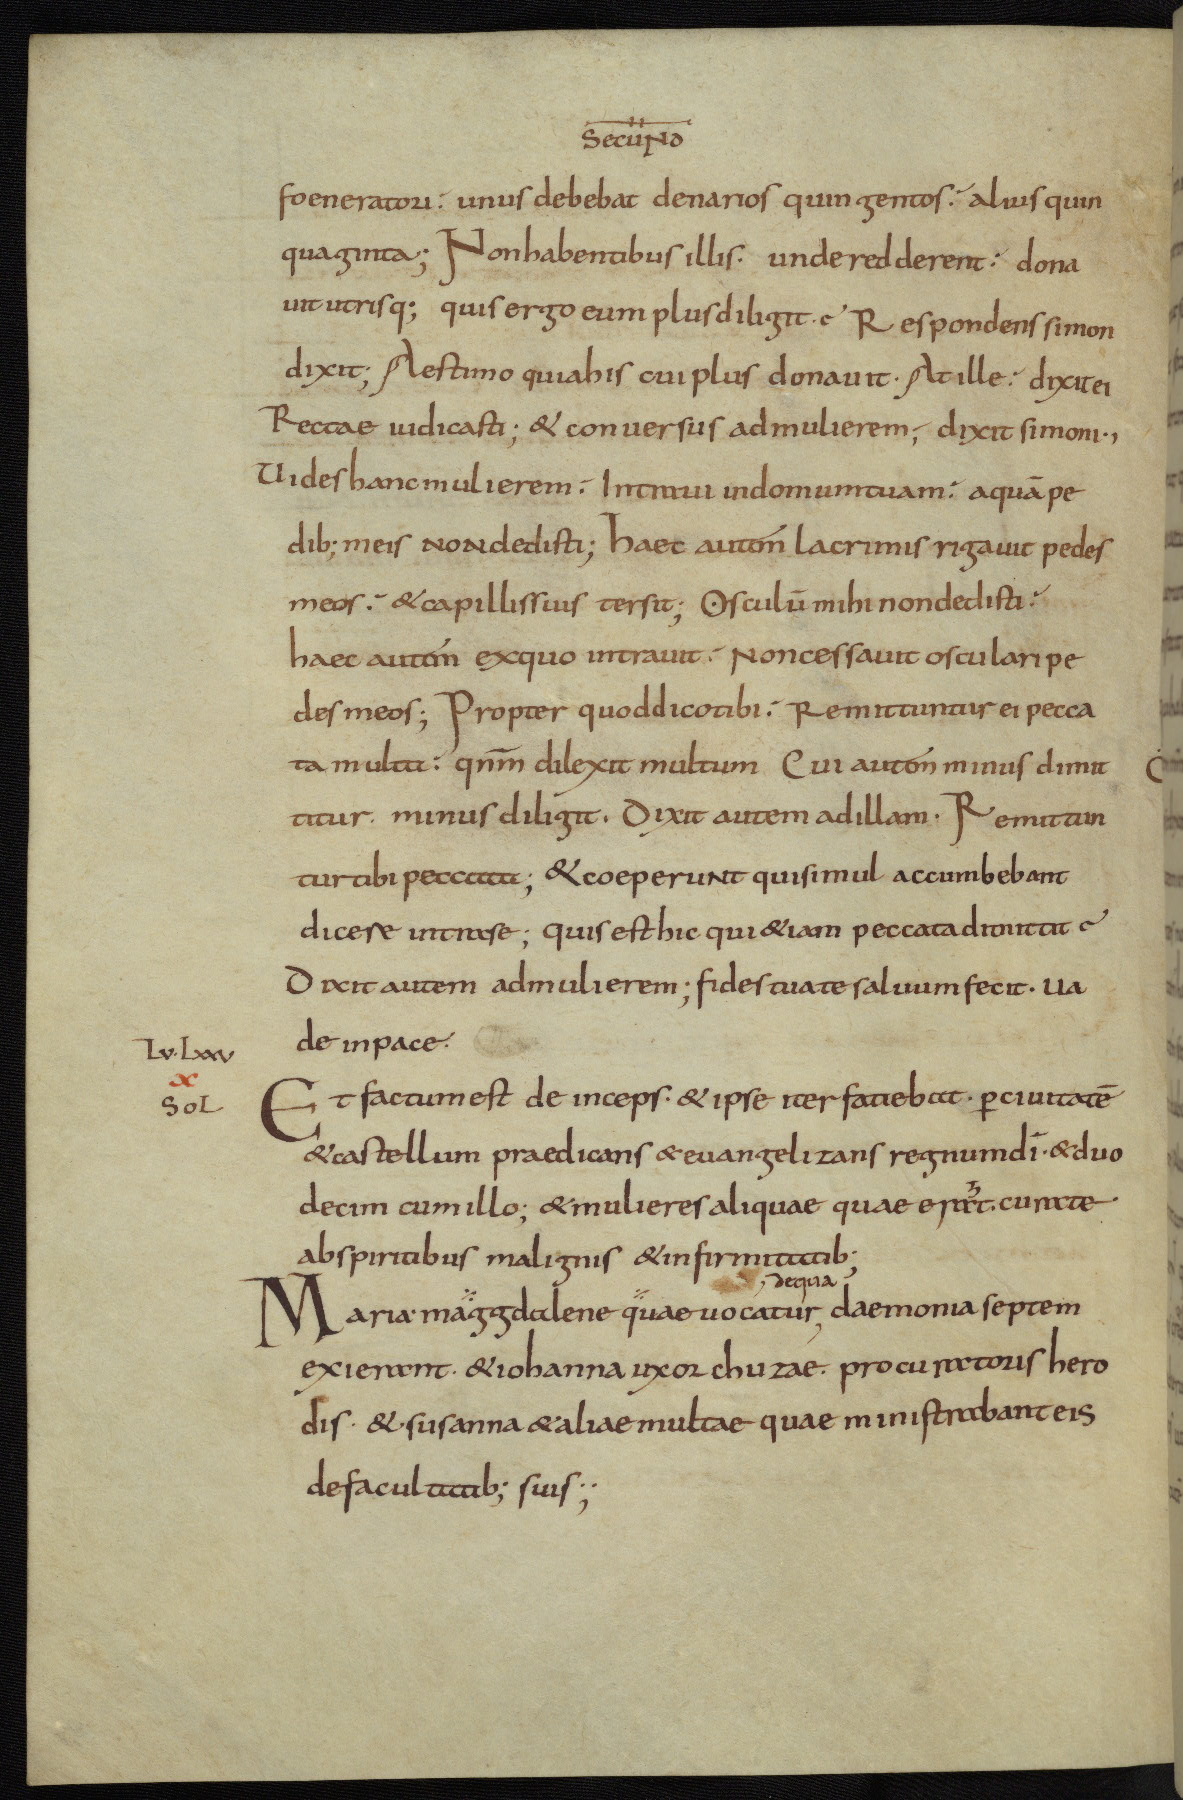 Secund̄
foeneratori: unus debebat denarios quingentos: alius quin
quaginta; Non habentibus illis. unde redderent: dona
uit utrisq; quis ergo eum plus diligit? Respondens simon
dixit; Aestimo quia his cui plus donauit. At ille: dixit ei
Rectae iudicasti; & conuersus ad mulierem; dixit simoni.,
Uides hanc mulierem: Intraui in domum tuam: aquā pe
dib; meis non dedisti; haec autē lacrimis rigauit pedes
meos: & capillis suis tersit; Osculū mihi non dedisti:
haec autē ex quo intrauit: Non cessauit osculari pe
des meos; Propter quod dico tibi: Remittuntur ei pecca
ta multa: qnm̄ dilexit multum Cui autē minus dimit
titur. minus diligit. Dixit autem ad illam. Remittun
tur tibi peccata; & coeperunt qui simul accumbebant
dicere intra se; quis est hic qui &iam peccata dimittit?
Dixit autem ad mulierem; fides tua te saluum fecit. Ua
de in pace.
Lv. Lxxv
x
Sol
Et factum est deinceps. & ipse iter faciebat. p̄ ciuitatē
& castellum praedicans & euangelizans regnum dī. & duo
decim cum illo; & mulieres aliquae quae erat. curate
ab spiritibus malignis & infirmitatib;
, de qua
Maria. maggdalene quae uocatur, daemonia septem
exierant. & iohanna uxor chuzae. procuratoris hero
dis. & susanna & aliae multae quae ministrabant eis
de facultatib; suis;;